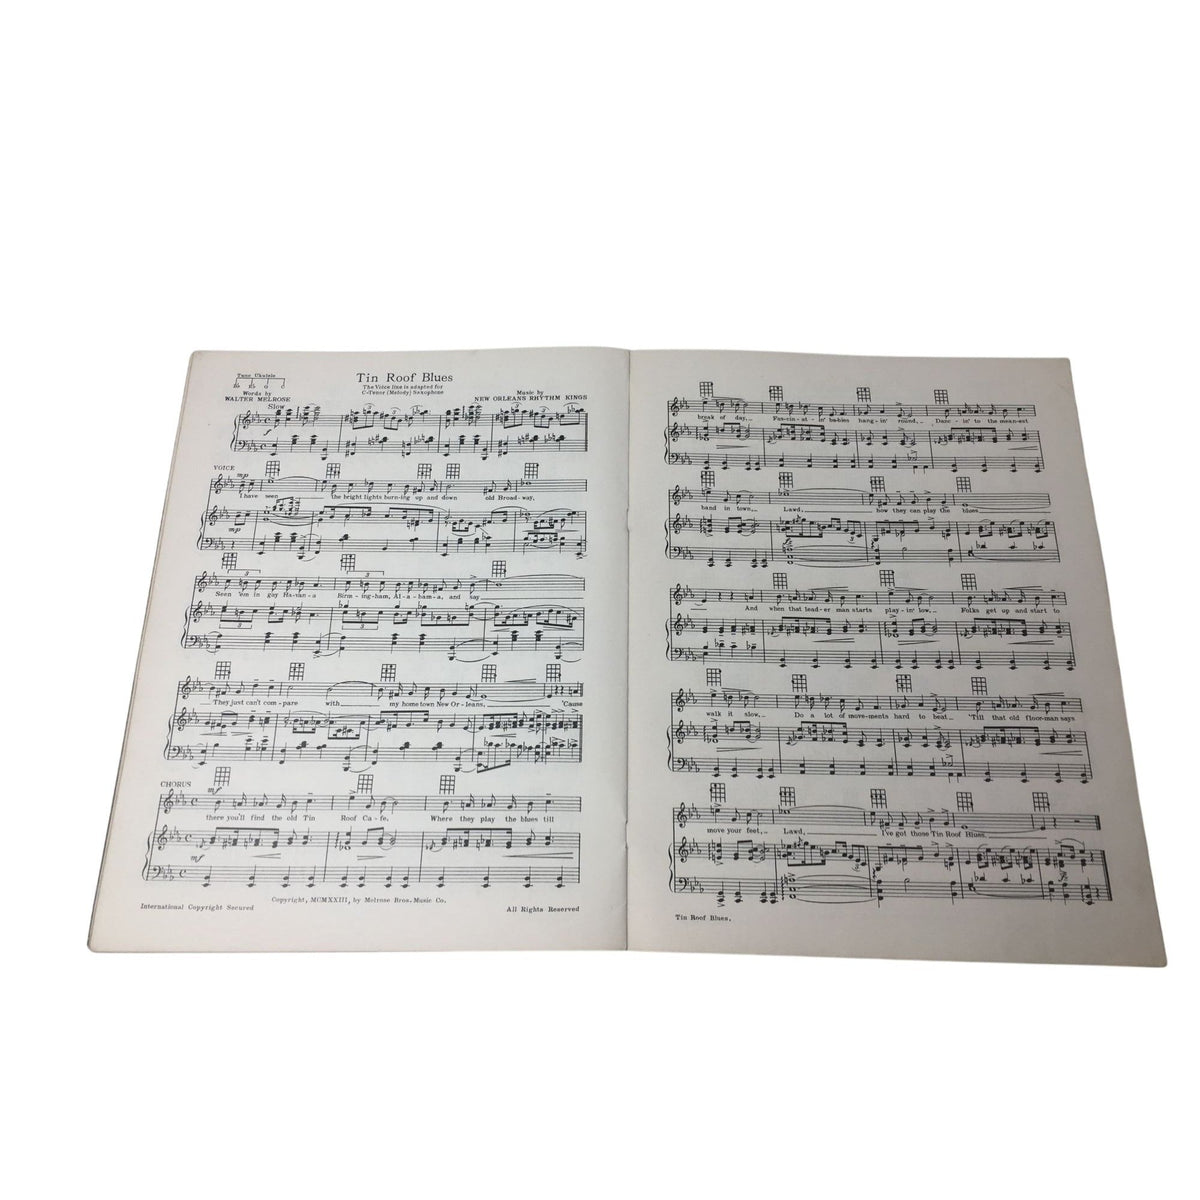 Tune Ukulele
Tin Roof Blues
The Voice line is adapted for
C-Tenor (Melody) Saxophone
Words by
WALTER MELROSE
Music by
NEW ORLEANS RHYTHM KINGS
Slow
VOICE
mp
I have seen the bright lights burn-ing up and down old Broad-way,
mp
Seen 'em in gay Ha-van-a Birm-ing-ham, Al-a-bam-a, and say
They just can't com-pare with my home town New Or-leans, 'Cause
CHORUS
mf
there you'll find the old Tin Roof Ca-fe. Where they play the blues till
mf
Copyright, MCMXXIII, by Melrose Bros. Music Co.
International Copyright Secured
All Rights Reserved
break of day, Fas-cin-at-in' babies hang-in' round, Danc-in' to the mean-est
band in town, Lawd, how they can play the blues
And when that lead-er man starts play-in' low, Folks get up and start to
walk it slow, Do a lot of move-ments hard to beat 'Till that old floor-man says
move your feet, Lawd, I've got those Tin Roof Blues.
Tin Roof Blues.